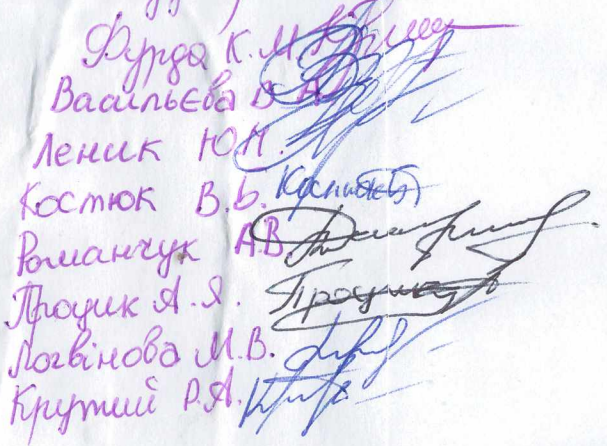 Фурда К.М.
Васильєва В
Леник Ю.М.
Костюк В.В. Костюк
Романчук А.В.
Процик А.Я. Процик
Логвінова М.В.
Крутий Р.А.